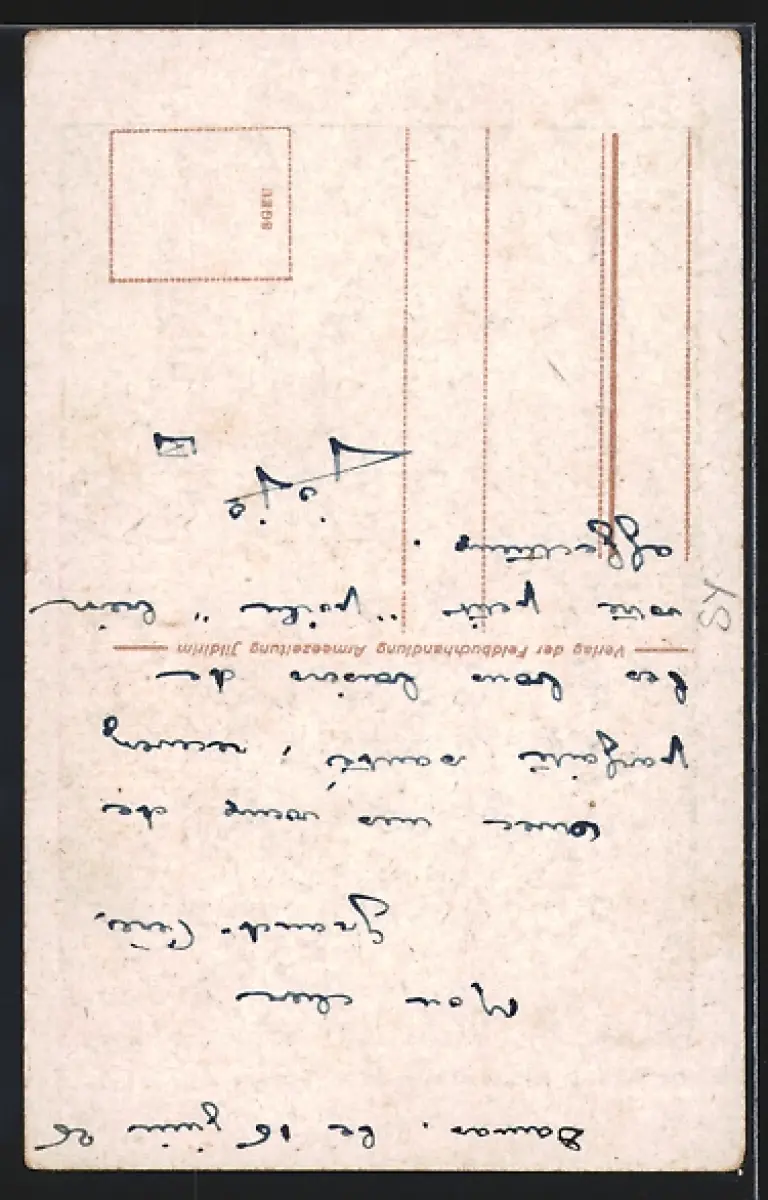 Damas. le 16 juin 26
Mon cher
Grand-Père,
Avec mes vœux de
parfaite santé, recevez
les bons baisers de
Verlag der Feldbuchhandlung Armeezeitung Jildirim
votre petit "poilu" bien
affectueux.
Jojo
SGEU